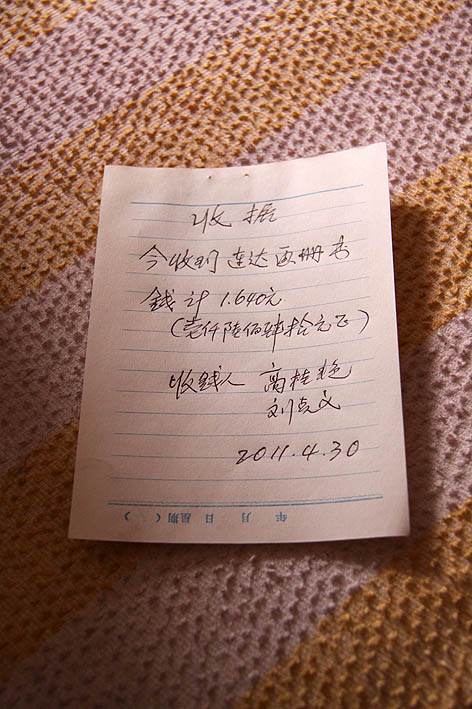 收据
今收到 连达画册书
錢計 1.640元
(壹仟陆佰肆拾元正)
收錢人 高桂艳
刘克文
2011.4.30
年 月 日 星期( )